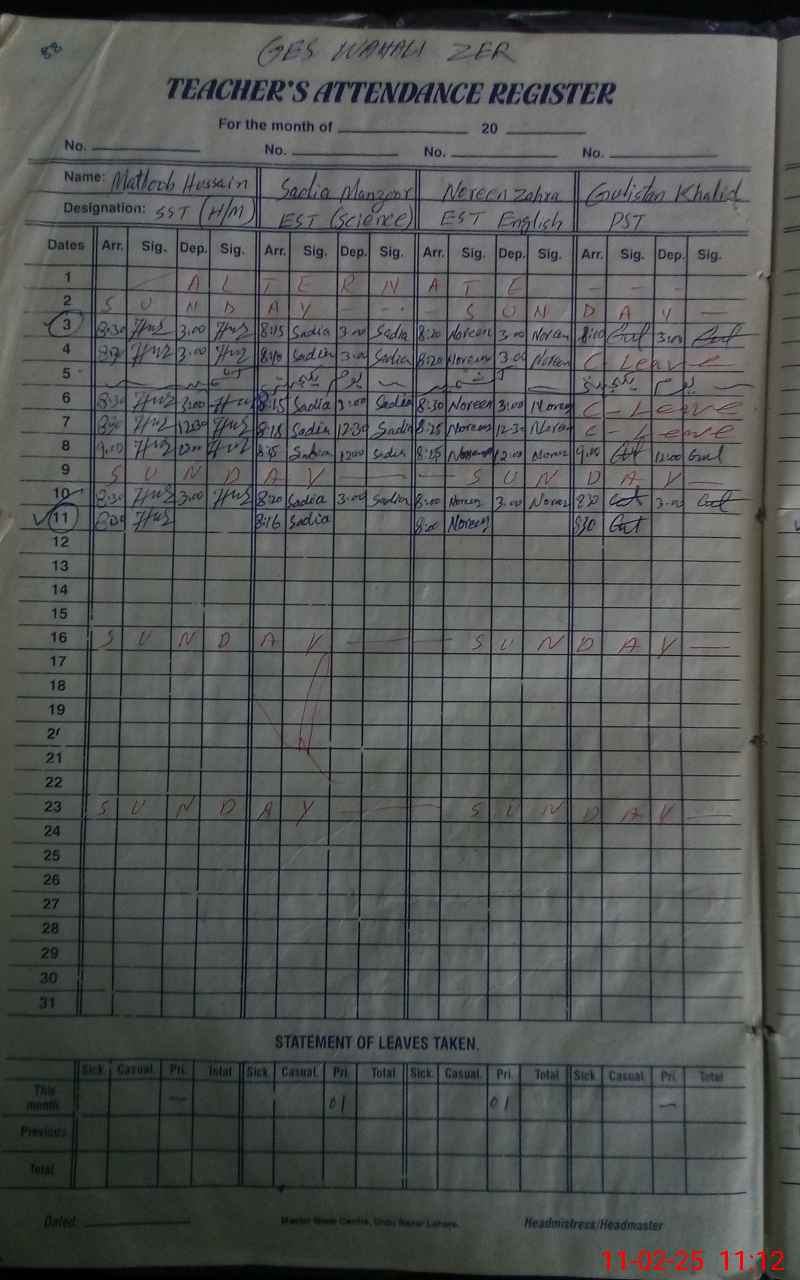 88
GES WAHALI ZER
TEACHER'S ATTENDANCE REGISTER
For the month of 20
No. No. No. No.
Name: Matloob Hussain Sadia Manzoor Noreen Zahra Gulistan Khalid
Designation: SST (H/M) EST (Science) EST English PST
Dates Arr. Sig. Dep. Sig. Arr. Sig. Dep. Sig. Arr. Sig. Dep. Sig. Arr. Sig. Dep. Sig.
1 A L T E R N A T E
2 S U N D A Y S U N D A Y
3 8:30 3:00 8:15 Sadia 3:00 Sadia 8:20 Noreen 3:00 Noreen 8:10 Gul 3:00 Gul
4 3:00 8:10 Sadia 3:00 Sadia 8:20 Noreen 3:00 Noreen C-Leave
5
6 8:30 3:00 8:15 Sadia 3:00 Sadia 8:30 Noreen 3:00 Noreen C-Leave
7 12:30 8:18 Sadia 12:30 Sadia 8:25 Noreen 12:30 Noreen C-Leave
8 9:00 12:00 8:15 Sadia 12:00 Sadia 8:15 Noreen 12:00 Noreen 9:00 Gul 12:00 Gul
9 S U N D A Y S U N D A Y
10 8:30 3:00 8:20 Sadia 3:00 Sadia 8:00 Noreen 3:00 Noreen Gul 3:00 Gul
11 8:16 Sadia 8:00 Noreen 830 Gul
12
13
14
15
16 S U N D A Y S U N D A Y
17
18
19
2
21
22
23 S U N D A Y S U N D A Y
24
25
26
27
28
29
30
31
STATEMENT OF LEAVES TAKEN.
Sick. Casual. Pri. Total Sick. Casual. Pri. Total Sick. Casual. Pri. Total Sick. Casual Pri. Total
This month 01 01
Previous
Total
Dated: Urdu Bazar Lahore. Headmistress/Headmaster
11-02-25 11:12